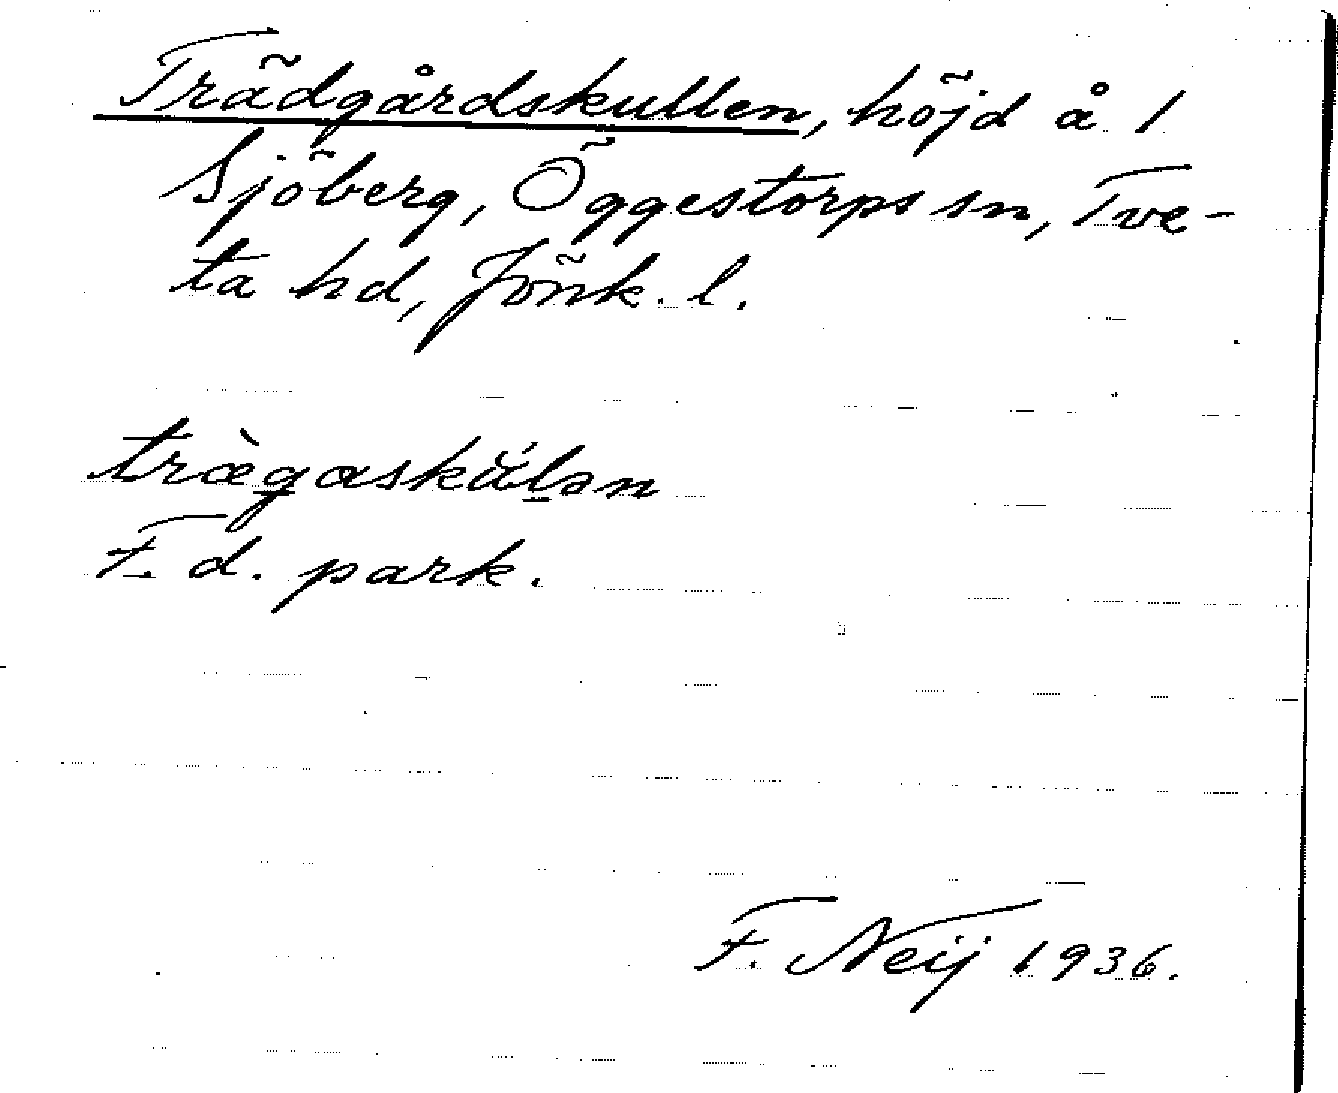 Trädgårdskullen, höjd å 1
Sjöberg, Öggestorps sn, Tve-
ta hd, Jönk. l.
træ̀gaskúlən
F. d. park.
F. Neij 1936.